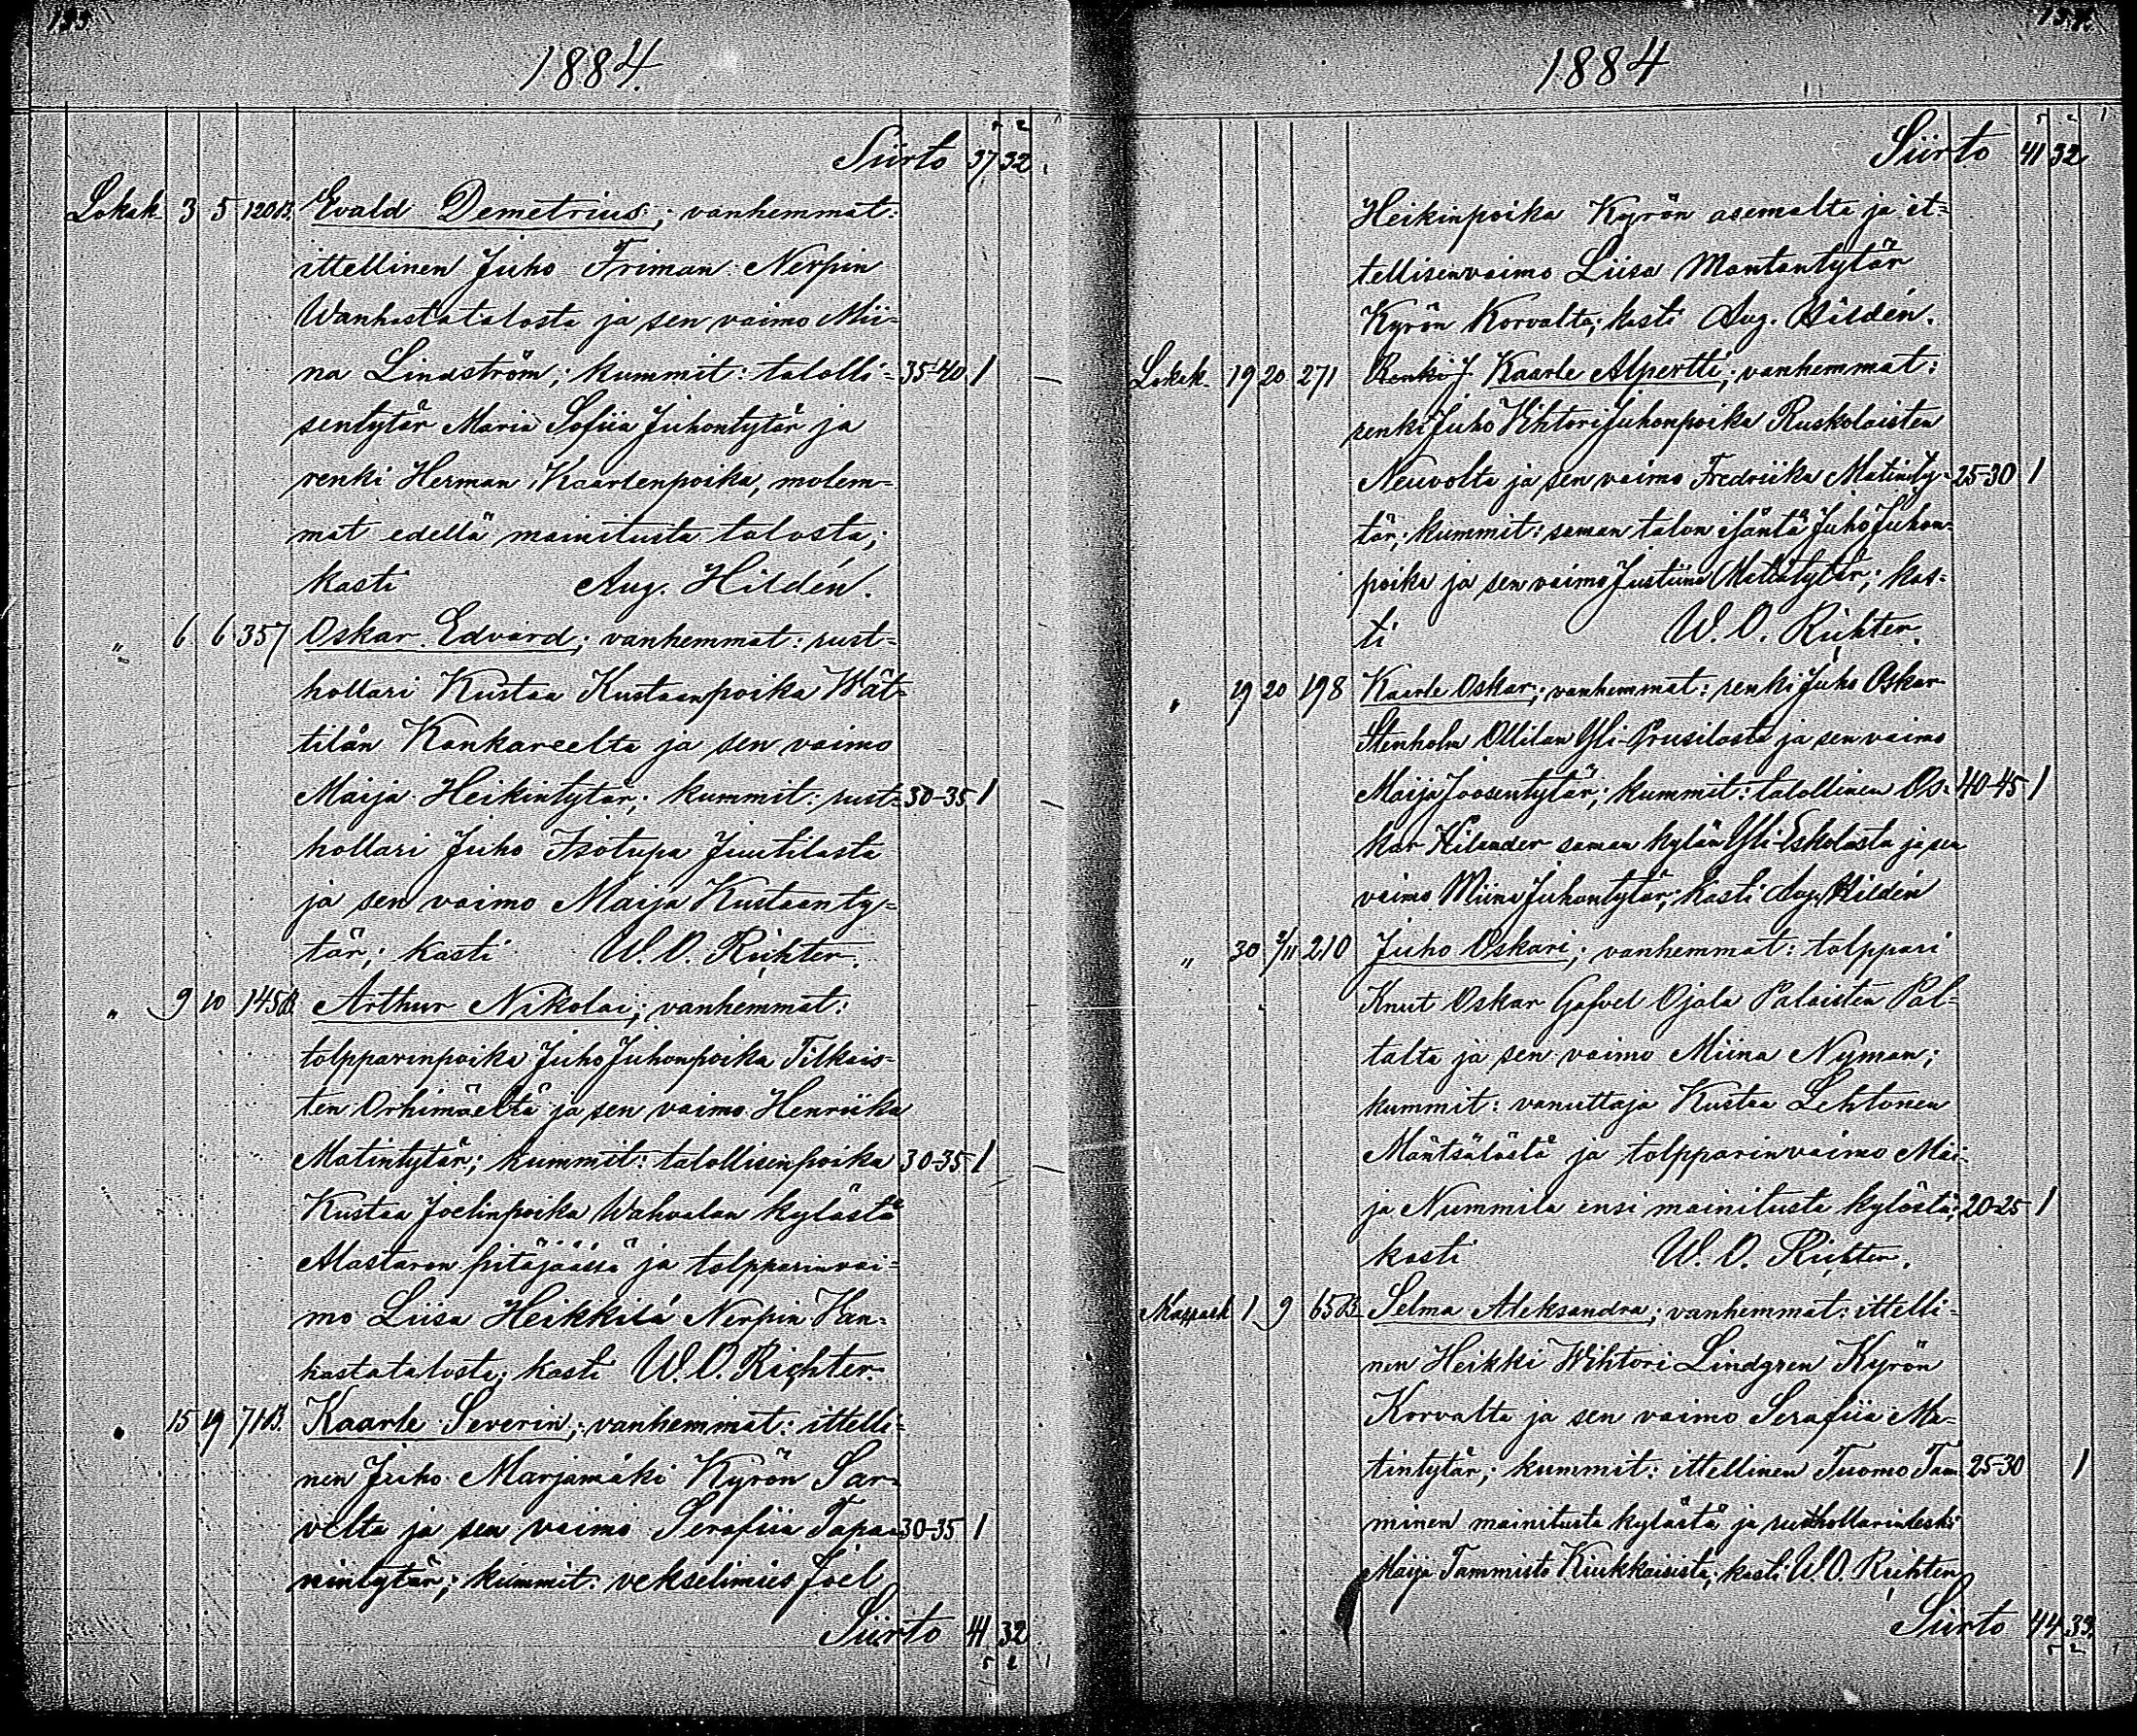 133.
1884.
Siirto 37 32
Lokak. 3 5 120B. Evald Demetrius; vanhemmat:
ittellinen Juho Friman Nerpin
Wanhastatalosta ja sen vaimo Mii=
na Lindström; kummit: talolli= 35-40 1
sentytär Maria Sofiia Juhontytär ja
renki Herman Kaarlenpoika, molem=
mat edellä mainitusta talosta;
kasti Aug. Hildén.
" 6 6 357 Oskar Edvard; vanhemmat: rust=
hollari Kustaa Kustaanpoika Wät=
tilän Kankareelta ja sen vaimo
Maija Heikintytär; kummit: rust= 30-35 1
hollari Juho Isotupa Juutilasta
ja sen vaimo Maija Kustaanty=
tär; kasti W. O. Richter.
" 9 10 145B. Arthur Nikolai; vanhemmat:
tolpparinpoika Juho Juhonpoika Tilkais=
ten Orhimäeltä ja sen vaimo Henriika
Matintytär; kummit: talollisenpoika 30-35 1
Kustaa Joelinpoika Wahvalan kylästä
Alastaron pitäjäässä ja tolpparinvai=
mo Liisa Heikkilä Nerpin Van=
hastatalosta; kasti W. O. Richter.
" 15 19 71B. Kaarle Severin; vanhemmat: ittelli=
nen Juho Marjamäki Kyrön Sar=
velta ja sen vaimo Serafiia Tapa= 30-35 1
nintytär; kummit: vekselimies Joel
Siirto 41 32
1884
Siirto 41 32
Heikinpoika Kyrön asemalta ja it=
tellisenvaimo Liisa Mantantytär
Kyrön Korvalta; kasti Aug. Hildén.
Lokak. 19 20 271 Renki J Kaarle Alpertti; vanhemmat:
renki Juho Vihtori Juhonpoika Ruskolaisten
Neuvolta ja sen vaimo Fredriika Matinty= 25-30 1
tär; kummit: saman talon isäntä Juho Juhon=
poika ja sen vaimo Justiina Matintytär; kas=
ti W. O. Richter.
" 19 20 198 Kaarle Oskar; vanhemmat: renki Juho Oskar
Stenholm Ollilan Yli-Prusilasta ja sen vaimo
Maija Joosentytär; kummit: talollinen Os= 40-45 1
kar Kilander saman kylän Yli-Eskolasta ja sen
vaimo Miina Juhontytär; kasti Aug. Hildén
" 30 2/11 210 Juho Oskari; vanhemmat: tolppari
Knut Oskar Gafvel Ojala Palaisten Pal=
talta ja sen vaimo Miina Nyman;
kummit: vanuttaja Kustaa Lehtonen
Mäntsälästä ja tolpparinvaimo Mai=
ja Nummila ensi mainitusta kylästä; 20-25 1
kasti W. O. Richter.
Marrask. 1 9 65B. Selma Aleksandra; vanhemmat: ittelli=
nen Heikki Wihtori Lindgren Kyrön
Korvalta ja sen vaimo Serafiia Ma=
tintytär; kummit: ittellinen Tuomo Tam= 25-30 1
minen mainitusta kylästä ja rusthollarinleski
Maija Tammisto Kiukkaisista; kasti W. O. Richter
Siirto 44 33.